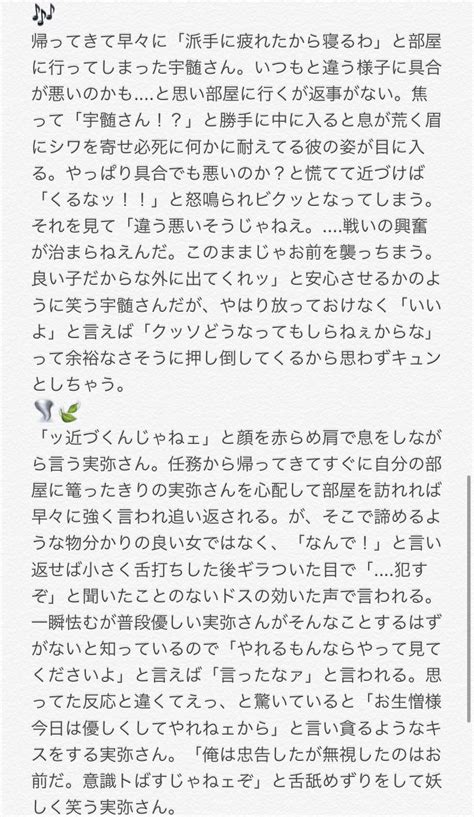 🎶
帰ってきて早々に「派手に疲れたから寝るわ」と部屋
に行ってしまった宇髄さん。いつもと違う様子に具合
が悪いのかも....と思い部屋に行くが返事がない。焦
って「宇髄さん！？」と勝手に中に入ると息が荒く眉
にシワを寄せ必死に何かに耐えてる彼の姿が目に入
る。やっぱり具合でも悪いのか？と慌てて近づけば
「くるなッ！！」と怒鳴られビクッとなってしまう。
それを見て「違う悪いそうじゃねえ。....戦いの興奮
が治まらねえんだ。このままじゃお前を襲っちまう。
良い子だからな外に出てくれッ」と安心させるかのよ
うに笑う宇髄さんだが、やはり放っておけなく「いい
よ」と言えば「クッソどうなってもしらねぇからな」
って余裕なさそうに押し倒してくるから思わずキュン
としちゃう。
🌪🍃
「ッ近づくんじゃねェ」と顔を赤らめ肩で息をしなが
ら言う実弥さん。任務から帰ってきてすぐに自分の部
屋に篭ったきりの実弥さんを心配して部屋を訪れれば
早々に強く言われ追い返される。が、そこで諦めるよ
うな物分かりの良い女ではなく、「なんで！」と言い
返せば小さく舌打ちした後ギラついた目で「....犯す
ぞ」と聞いたことのないドスの効いた声で言われる。
一瞬怯むが普段優しい実弥さんがそんなことするはず
がないと知っているので「やれるもんならやって見て
くださいよ」と言えば「言ったなァ」と言われる。思
ってた反応と違くてえっ、と驚いていると「お生憎様
今日は優しくしてやれねェから」と言い貪るようなキ
スをする実弥さん。「俺は忠告したが無視したのはお
前だ。意識トばすじゃねェぞ」と舌舐めずりをして妖
しく笑う実弥さん。